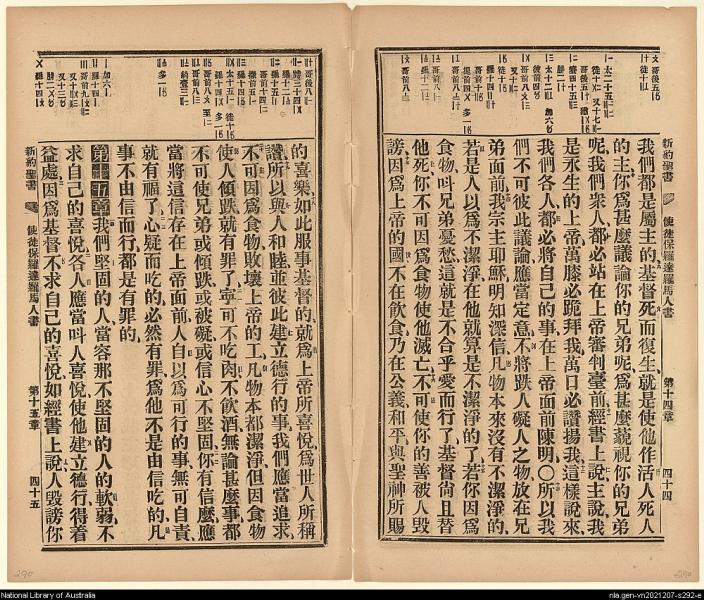 我們都是屬主的基督死而復生就是使他作活人死人
的主你爲甚麽議論你的兄弟呢爲甚麽藐視你的兄弟
呢我們衆人都必站在上帝審判臺前經書上說主說我
是永生的上帝萬膝必跪拜我萬口必讚揚我這樣說來
我們各人都必將自己的事在上帝面前陳明〇所以我
們不可彼此議論應當定意不將跌人礙人之物放在兄
弟面前我宗主耶穌明知深信凡物本來沒有不潔淨的
若是人以爲不潔淨在他就算是不潔淨的了若你因爲
食物叫兄弟憂愁這就是不合乎愛而行了基督尙且替
他死你不可因爲食物使他滅亡不可使你的善被人毀
謗因爲上帝的國不在飲食乃在公義和平與聖神所賜
新約聖書
使徒保羅達羅馬人書
第十四章
四十四
的喜樂如此服事基督的就爲上帝所喜悅爲世人所稱
讚所以與人和睦並彼此建立德行的事我們應當追求
不可因爲食物敗壞上帝的工凡物本都潔淨但因食物
使人傾跌就有罪了寧可不吃肉不飲酒無論甚麽事都
不可使兄弟或傾跌或被礙或信心不堅固你有信麽應
當將這信存在上帝面前人自以爲可行的事無可自責
就有福了心疑而吃的必然有罪爲他不是由信吃的凡
事不由信而行都是有罪的
第十五章我們堅固的人當容那不堅固的人的軟弱不
求自己的喜悅各人應當叫人喜悅使他建立德行得着
益處因爲基督不求自己的喜悅如經書上說人毀謗你
新約聖書
使徒保羅達羅馬人書
第十五章
四十五
290
290
National Library of Australia
nla.gen-vn2021207-s292-e